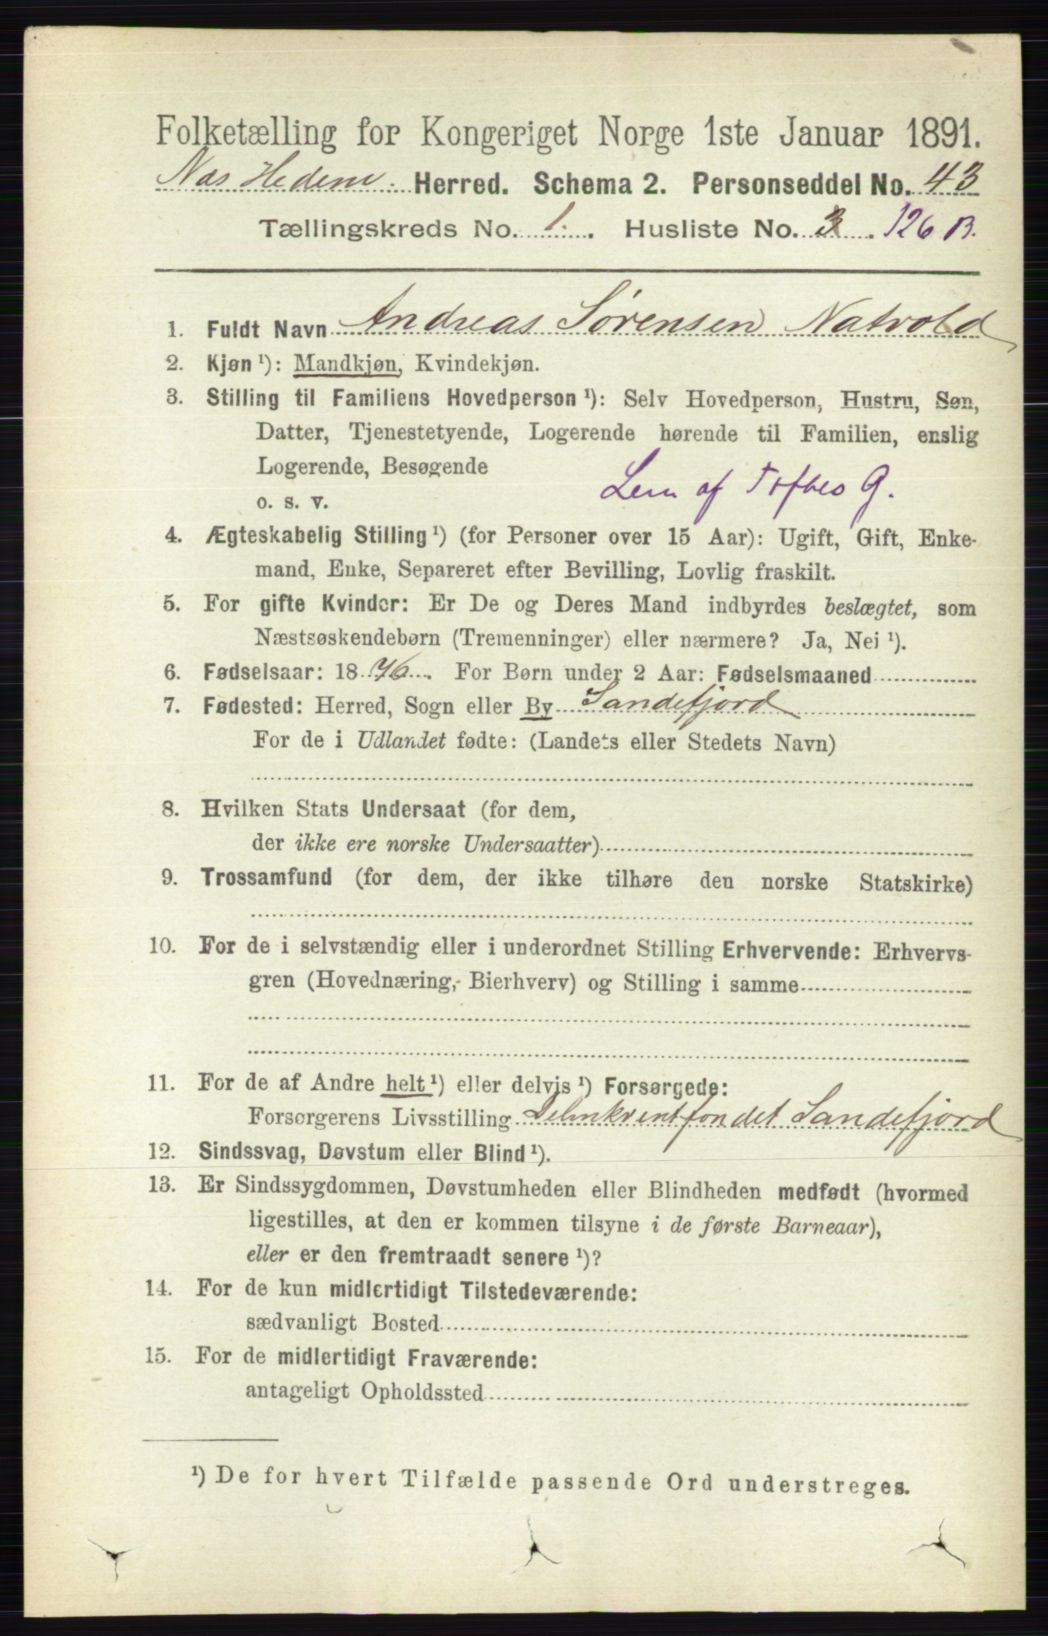 Folketælling for Kongeriget Norge 1ste Januar 1891.
Næs Hedem. Herred. Schema 2. Personseddel No. 43
Tællingskreds No. 1. Husliste No. 3. 126 B.
1. Fuldt Navn Andreas Sørensen Natvold
2. Kjøn ¹): Mandkjøn, Kvindekjøn.
3. Stilling til Familiens Hovedperson ¹): Selv Hovedperson, Hustru, Søn,
Datter, Tjenestetyende, Logerende hørende til Familien, enslig
Logerende, Besøgende
o. s. v. Lem af Toftes G.
4. Ægteskabelig Stilling ¹) (for Personer over 15 Aar): Ugift, Gift, Enke-
mand, Enke, Separeret efter Bevilling, Lovlig fraskilt.
5. For gifte Kvinder: Er De og Deres Mand indbyrdes beslægtet, som
Næstsøskendebørn (Tremenninger) eller nærmere? Ja, Nei ¹).
6. Fødselsaar: 1876. For Børn under 2 Aar: Fødselsmaaned
7. Fødested: Herred, Sogn eller By Sandefjord
For de i Udlandet fødte: (Landets eller Stedets Navn)
8. Hvilken Stats Undersaat (for dem,
der ikke ere norske Undersaatter)
9. Trossamfund (for dem, der ikke tilhøre den norske Statskirke)
10. For de i selvstændig eller i underordnet Stilling Erhvervende: Erhvervs-
gren (Hovednæring, Bierhverv) og Stilling i samme
11. For de af Andre helt ¹) eller delvis ¹) Forsørgede:
Forsørgerens Livsstilling Delinkventfondet Sandefjord
12. Sindssvag, Døvstum eller Blind ¹).
13. Er Sindssygdommen, Døvstumheden eller Blindheden medfødt (hvormed
ligestilles, at den er kommen tilsyne i de første Barneaar),
eller er den fremtraadt senere ¹)?
14. For de kun midlertidigt Tilstedeværende:
sædvanligt Bosted
15. For de midlertidigt Fraværende:
antageligt Opholdssted
¹) De for hvert Tilfælde passende Ord understreges.